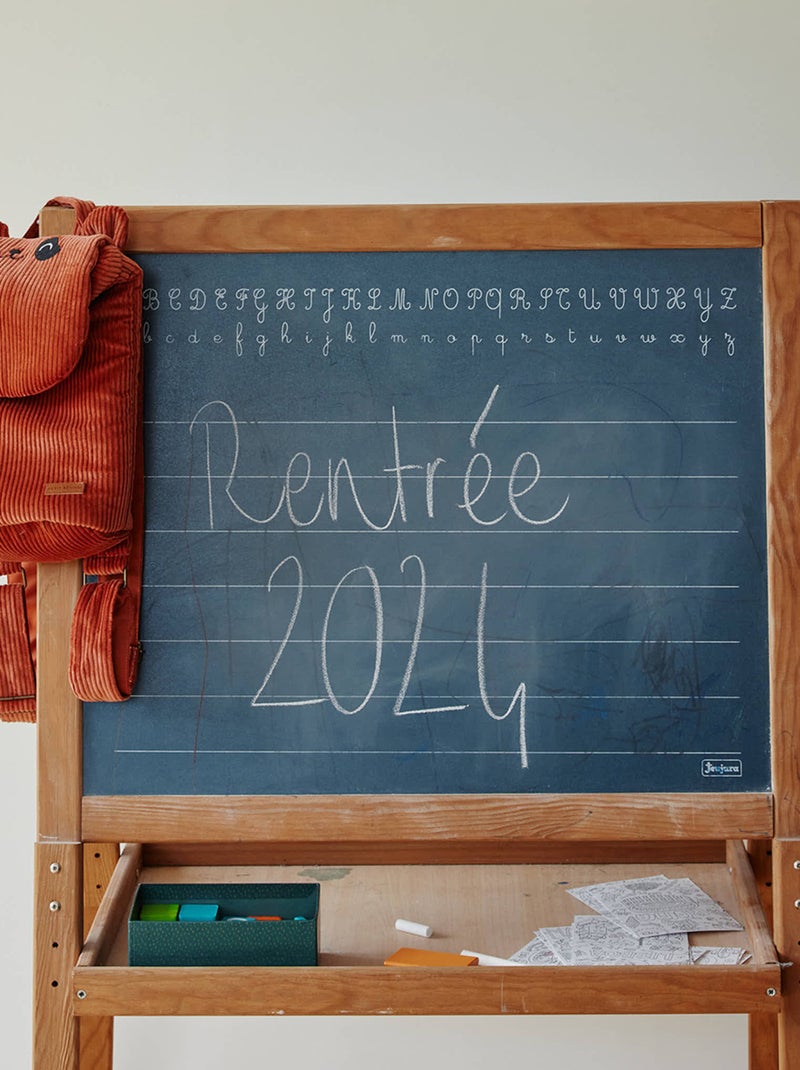 B C D E F G H I J K L M N O P Q R S T U V W X Y Z
b c d e f g h i j k l m n o p q r s t u v w x y z
Rentrée
2024
Jeujura